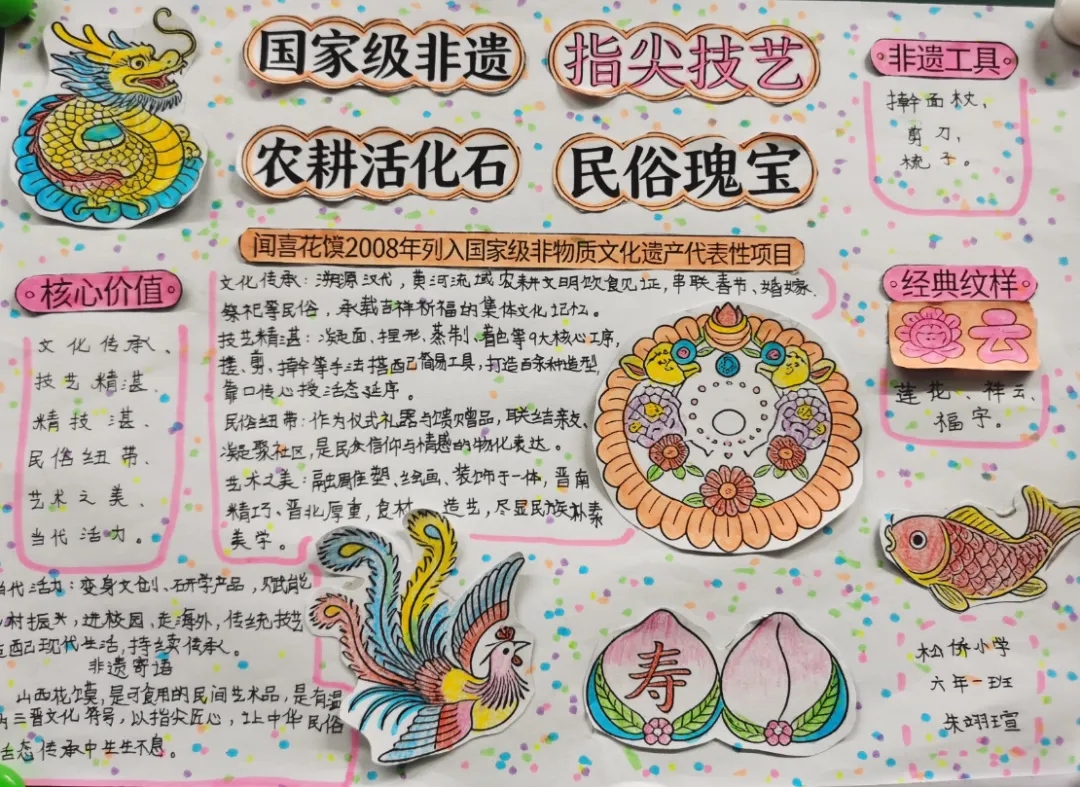 国家级非遗
指尖技艺
农耕活化石
民俗瑰宝
闻喜花馍2008年列入国家级非物质文化遗产代表性项目
非遗工具
擀面杖、
剪刀、
梳子。
核心价值
文化传承、
技艺精湛、
精技湛、
民俗纽带、
艺术之美、
当代活力。
文化传承：溯源汉代，黄河流域农耕文明饮食见证，串联春节、婚嫁、
祭祀等民俗，承载吉祥祈福的集体文化记忆。
技艺精湛：凝面、捏形、蒸制、着色等9大核心工序，
搓、剪、擀等手法搭配简易工具，打造百余种造型，
靠口传心授活态延序。
民俗纽带：作为仪式礼器与馈赠品，联结亲友、
凝聚社区，是民食信仰与情感的物化表达。
艺术之美：融雕塑、绘画、装饰于一体，晋南
精巧、晋北厚重，食材 造艺，尽显民族朴素
美学。
经典纹样
云
莲花、祥云、
福字。
当代活力：变身文创、研学产品，赋能
村振兴，进校园、走海外，传统技艺
配现代生活，持续传承。
非遗寄语
山西花馍，是可食用的民间艺术品，是有温
三晋文化符号，以指尖匠心，让中华民俗
活态传承中生生不息。
寿
松侨小学
六年一班
朱翊瑄